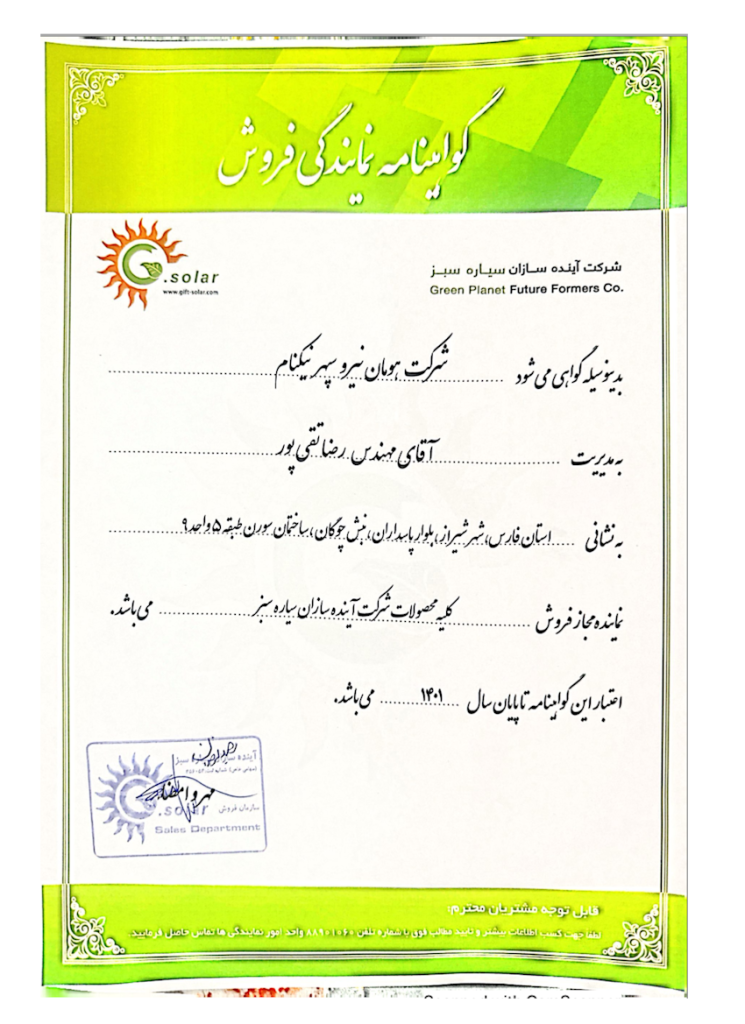 گواهینامه نمایندگی فروش
شرکت آینده سـازان سیـاره سبـز
Green Planet Future Formers Co.
G.solar
www.gift-solar.com
بدینوسیله گواهی می شود ........ شرکت هومان نیرو سپهر نیکنام ........
به مدیریت ........ آقای مهندس رضا تقی پور ........
به نشانی ........ استان فارس، شهر شیراز، بلوار پاسداران، نبش چوگان، ساختمان سورن طبقه ۵ واحد ۹ ........
نماینده مجاز فروش ........ کلیه محصولات شرکت آینده سازان سیاره سبز ........ می باشد.
اعتبار این گواهینامه تا پایان سال ........ ۱۴۰۱ ........ می باشد.
آینده سبز
سازمان فروش
مهر و امضاء
G.solar
Sales Department
قابل توجه مشتریان محترم:
لطفا جهت کسب اطلاعات بیشتر و تایید مطالب فوق با شماره تلفن ۸۸۹۰۱۰۶۰ واحد امور نمایندگی ها تماس حاصل فرمایید.